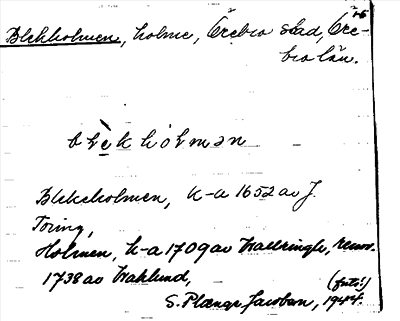 Blekholmen, holme, Örebro stad, Öre-
bro län.
blekholmən
Blekeholmen, k-a 1652 av J.
Toring,
Holmen, k-a 1709 av Kaellringh, renov.
1738 av Wahlund,
(forts!)
S. Plænge Jacobson, 1944.